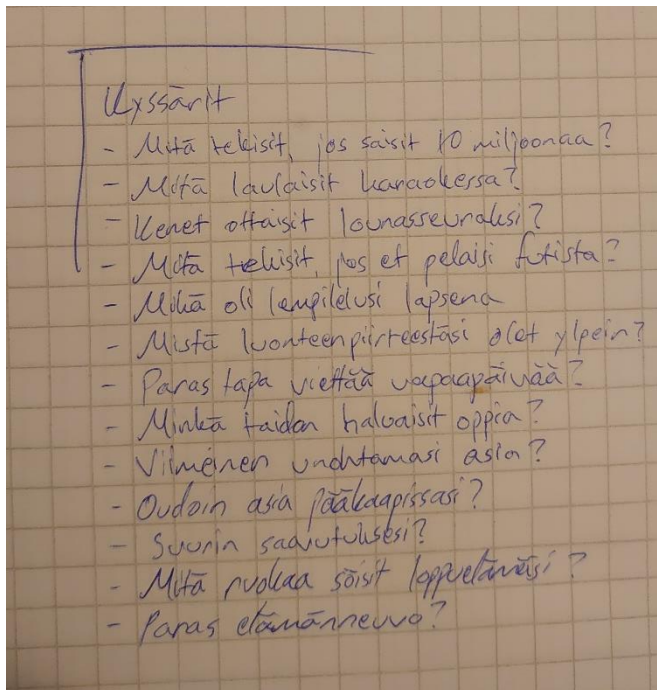 Kyssärit
- Mitä tekisit, jos saisit 10 miljoonaa?
- Mitä laulaisit karaokessa?
- Kenet ottaisit lounasseuraksi?
- Mitä tekisit, jos et pelaisi futista?
- Mikä oli lempilelusi lapsena
- Mistä luonteenpiirteestäsi olet ylpein?
- Paras tapa viettää vapaapäivää?
- Minkä taidon haluaisit oppia?
- Viimeinen unohtamasi asia?
- Oudoin asia jääkaapissasi?
- Suurin saavutuksesi?
- Mitä ruokaa söisit loppuelämäsi?
- Paras elämänneuvo?